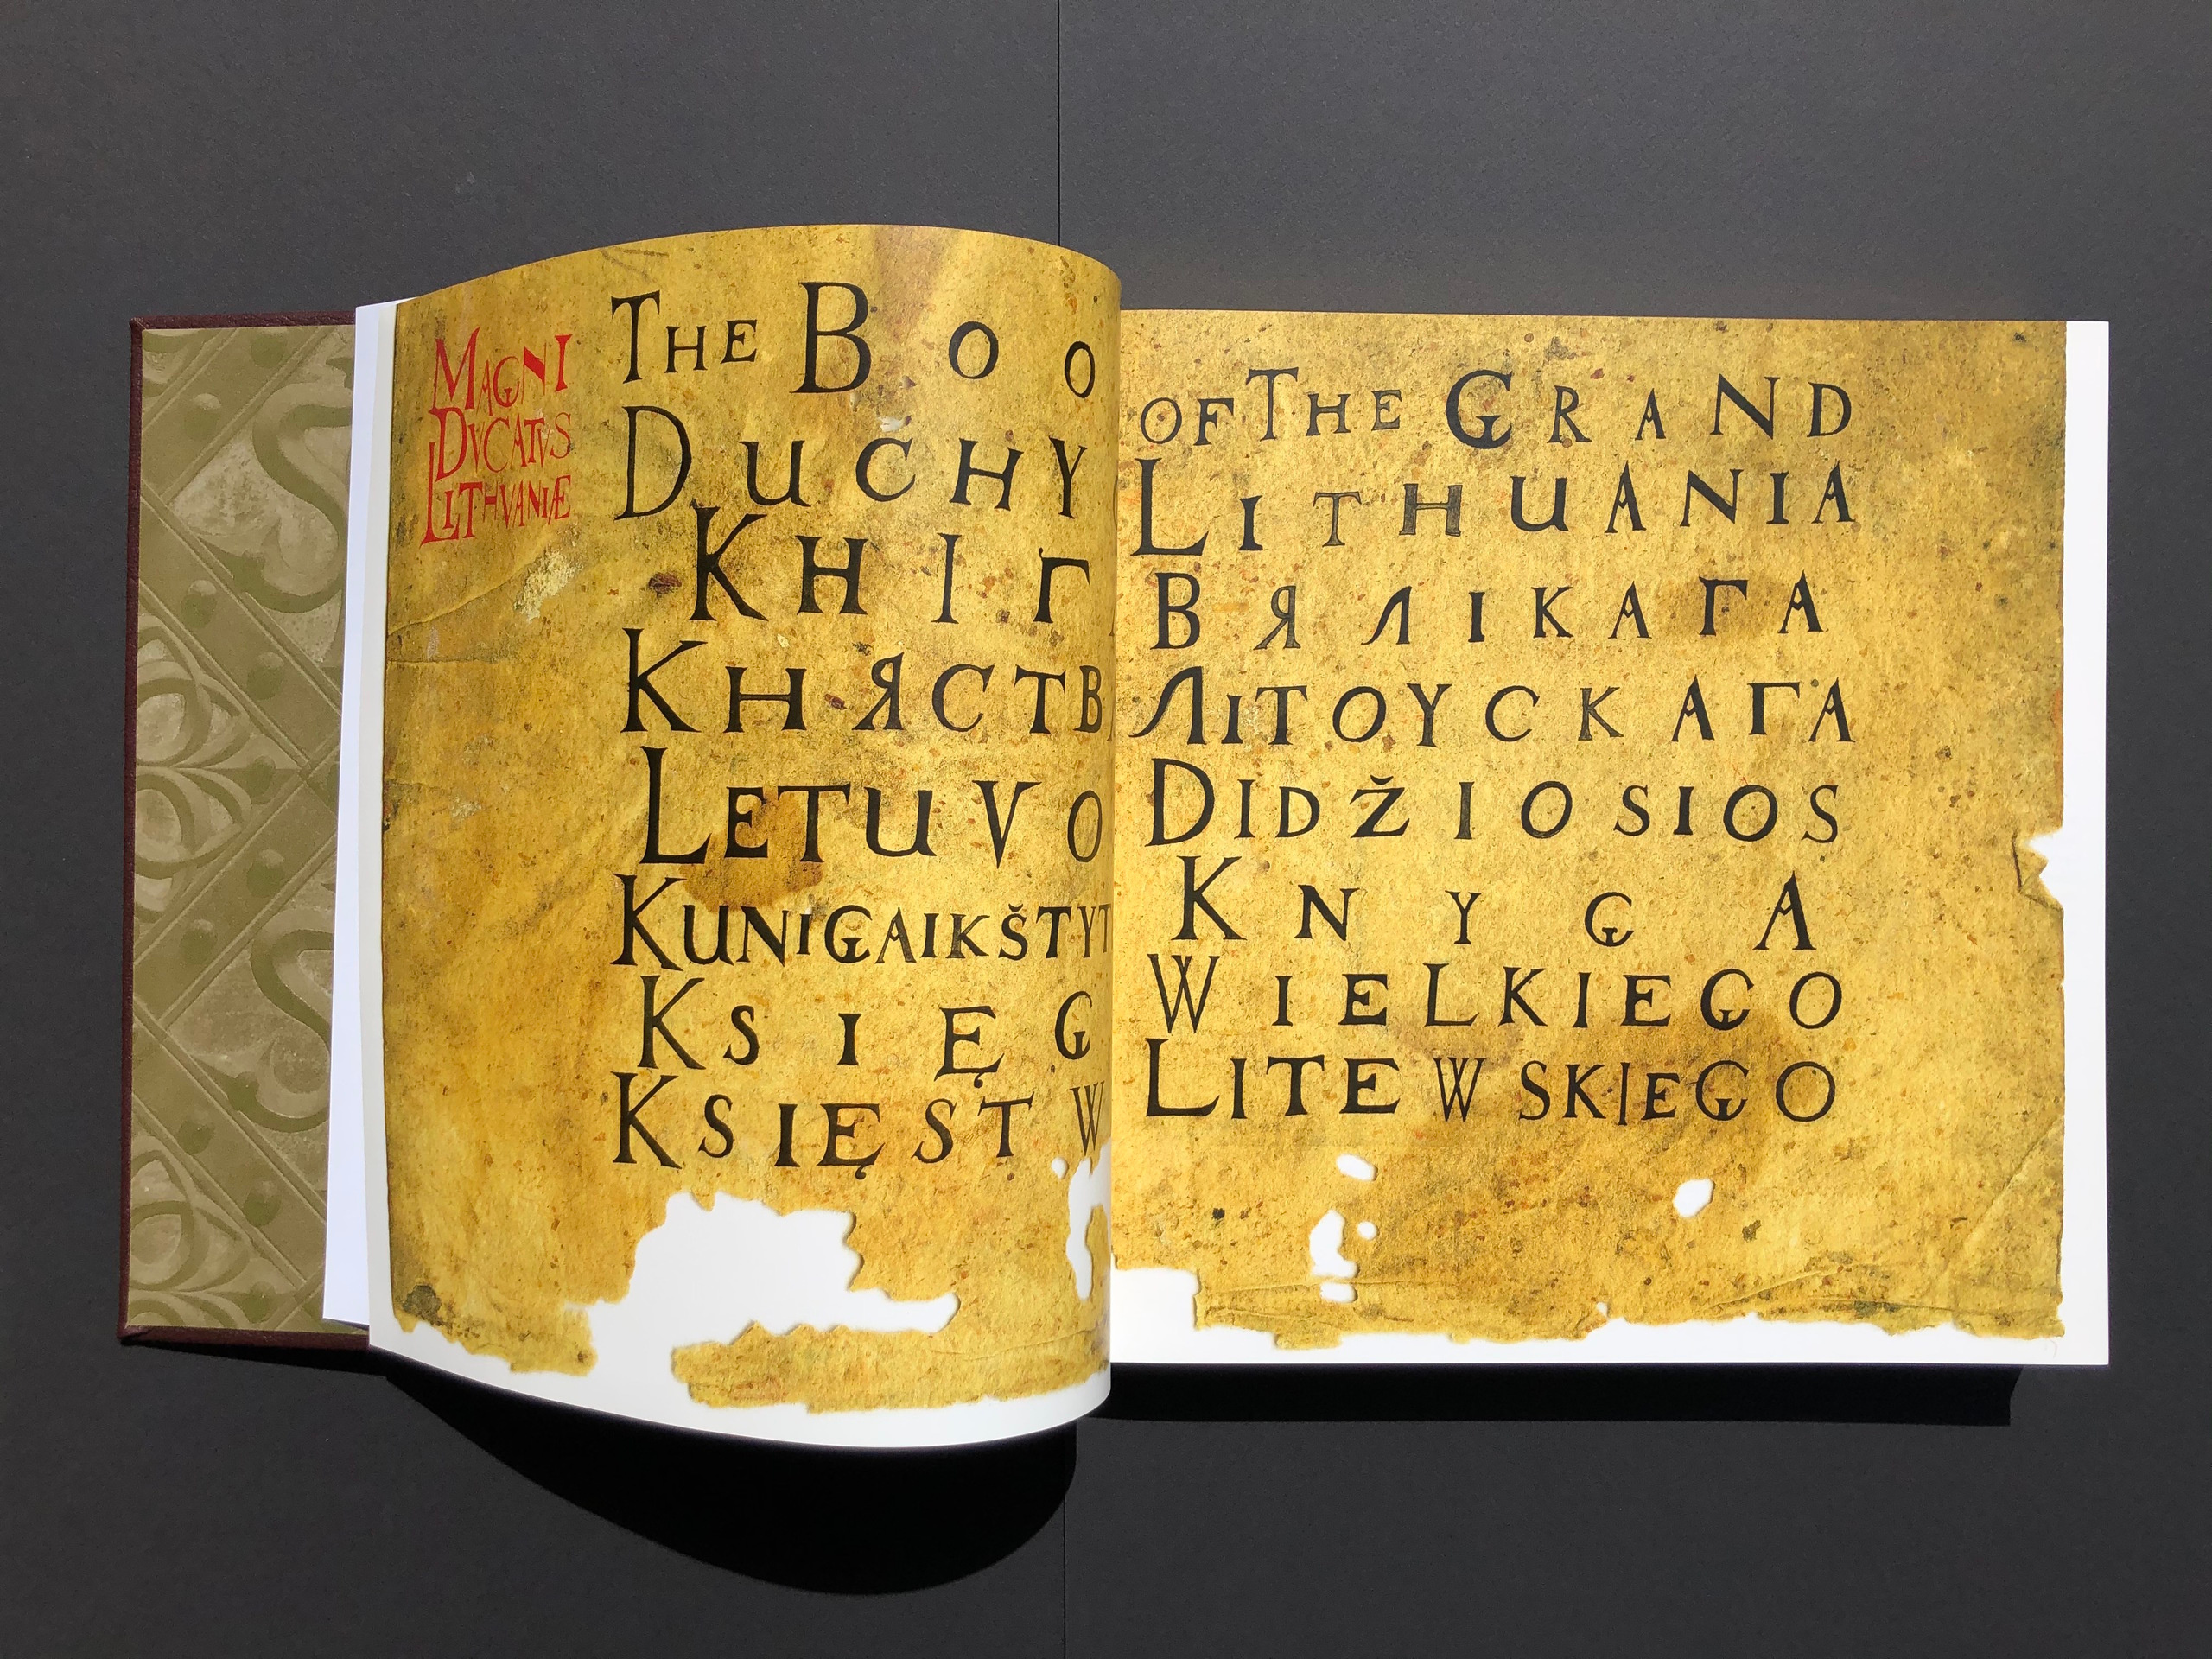 MAGNI
DVCATVS
LITHVANIÆ
THE BOO OF THE GRAND
DUCHY LITHUANIA
КНІГ ВЯЛІКАГА
КНЯСТВ ЛІТОУСКАГА
LETUVO DIDŽIOSIOS
KUNIGAIKŠTYT KNYGA
KSIĘG WIELKIEGO
KSIĘSTW LITEWSKIEGO